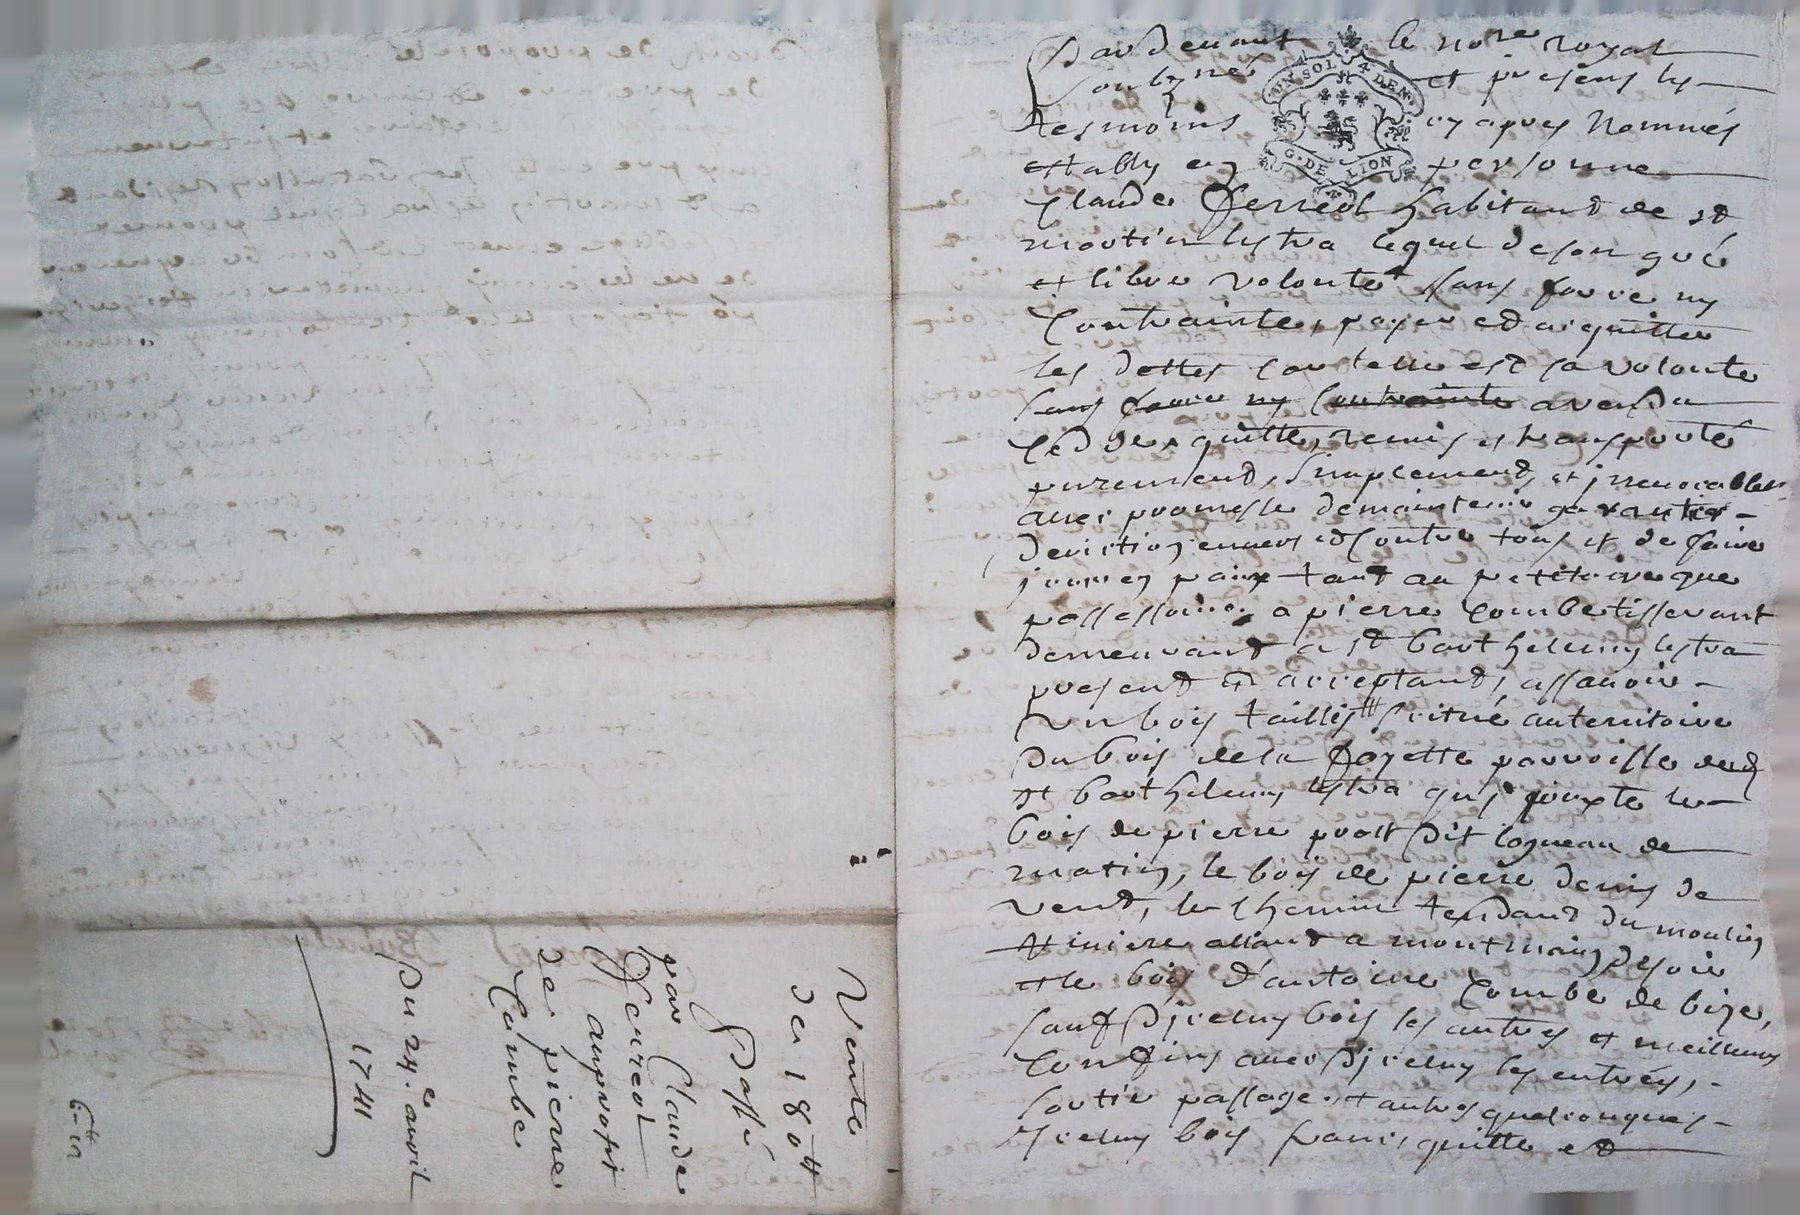 Vente
de 180 ₶
Passé
par Claude
Ferreol
au profit
de pierre
Combe
Du 24.e avril
1741
Pardevant le no.re royal
soubzné et presens les
tesmoins cy apres Nommés
estably en personne
Claude Ferreol habitant de st
martin lestra lequel de son gré
et libre volonté sans force ny
Contrainte, payer et acquitter
les dettes car telle est sa volonte
sans force ny Contrainte a vendu
Cedde, quitte, remis et transporté
purement, simplement, et irreuocablem
auec promesse de maintenir garantir
deviction enuers et Contre tous et de faire
jouir en paix tant au petitoire que
possessoire, a pierre Combe tisserant
demeurant a st barthelemy lestra
present et acceptant, assauoir
Un bois taillis scitué au territoire
du bois de la fayette parroisse dud
st barthelemy lestra qui jouxte le
bois de pierre prost dit logneau de
matin, le bois de pierre denis de
vent, le Chemin tendant du moulin
allant a montmain de soir
et le bois d'antoine Combe de bize,
sauf dicelluy bois les autres et meilleurs
Confins auec dicelluy les entrées,
sortie passage et autres quelconques
Icelluy bois franc quitte et
UN SOL 4 DEN.
G. DE LION